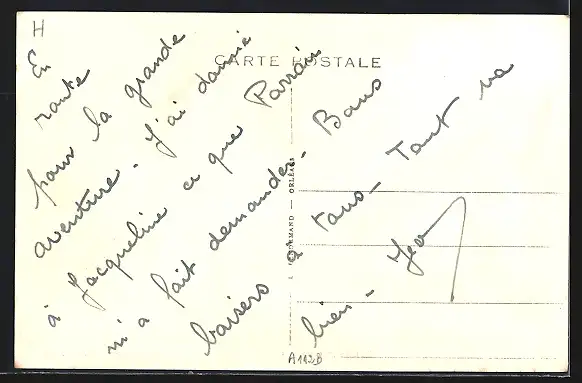 H
CARTE POSTALE
En
route
pour la grande
aventure. J'ai donné
à Jacqueline ce que Parrain
m'a fait demander. Bons
baisers à tous. Tout va
bien - Jean
ORLÉANS
A112B